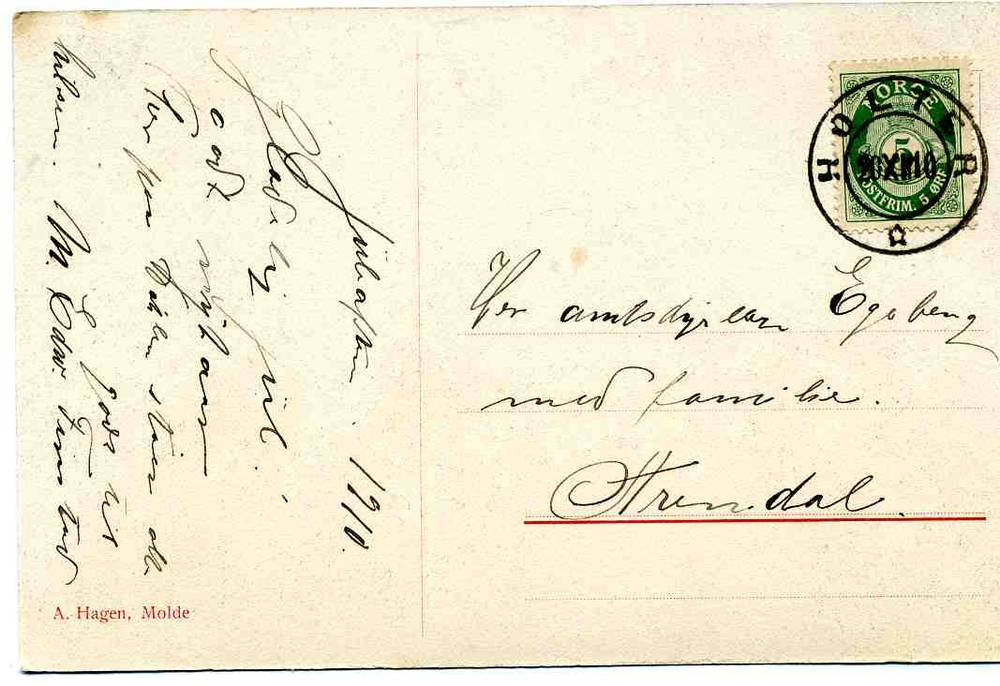 Juleaften. 1910.
Glædelig jul!
godt nytaar
Her paa staar alt
godt til
hilsen. M. Edw.
Her amtsdyrlæge Egeberg
med familie.
Arendal.
NORGE
5
POSTFRIM. 5 ØRE
HOLTER
20 XII 10
A. Hagen, Molde